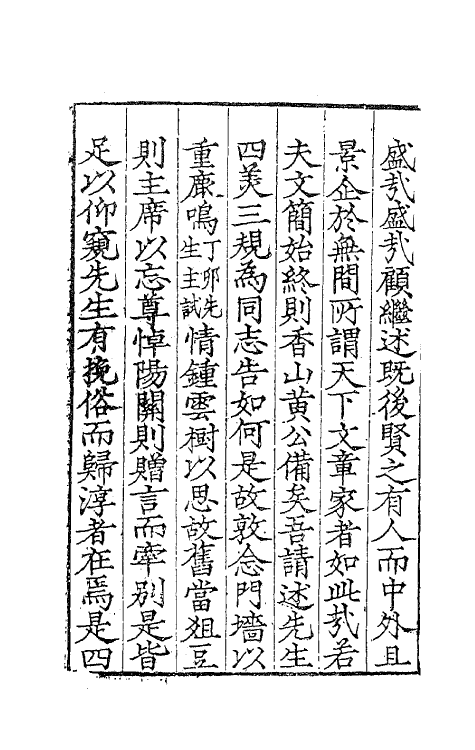 盛㢤盛㢤顧繼述既後賢之有人而中外且
景企於無間所謂天下文章家者如此㢤若
夫文簡始終則香山黄公備矣吾請述先生
四美三規為同志告如何是故敦念門墻以
重鹿鳴丁卯先生主試情鍾雲樹以思故舊當俎豆
則主席以忘尊悼陽關則贈言而牽别是皆
足以仰窺先生有挽俗而歸淳者在焉是四